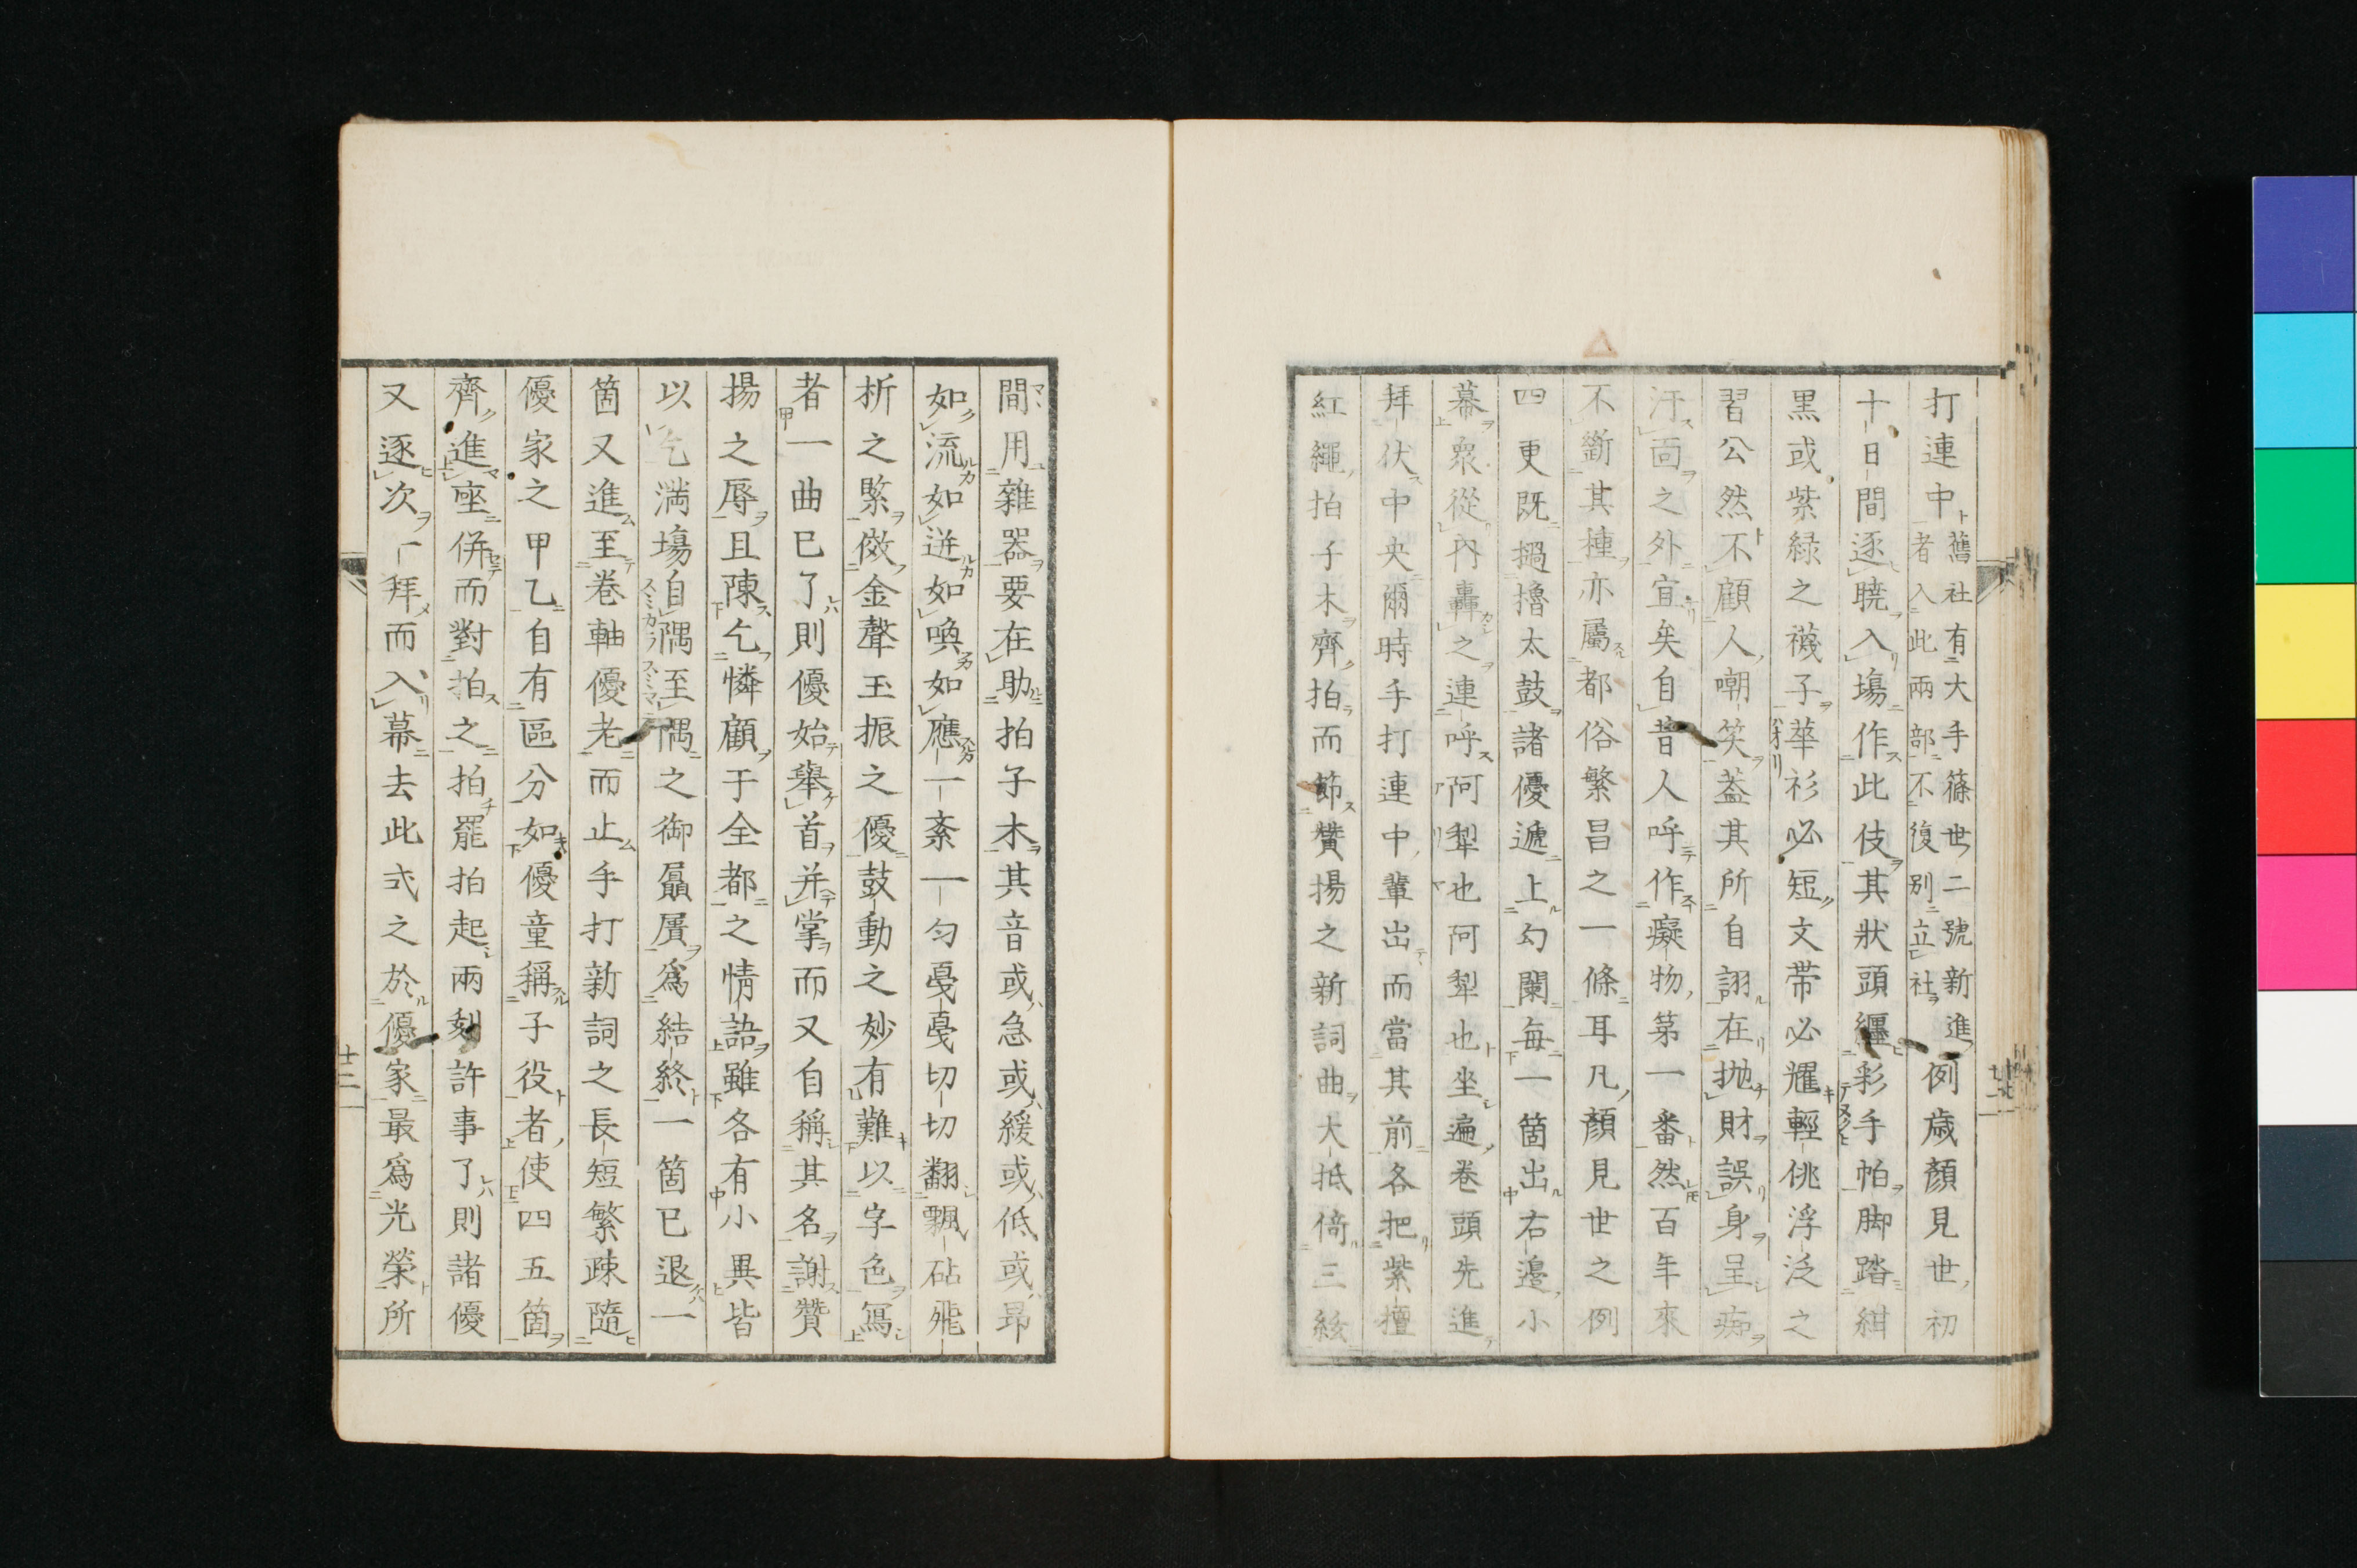 打連中舊社有大手篠世二號新進者入此兩部不復別立社例歳顏見世初
十日間逐曉入塲作此伎其狀頭纏彩手帕脚踏紺
黒或紫緑之襪子華衫必短文帯必耀輕佻浮泛之
習公然不顧人嘲笑葢其所自詡在抛財誤身呈痴
汙面之外宜矣自昔人呼作癡物第一番然百年來
不斷其種亦屬都俗繁昌之一條耳凡顏見世之例
四更既撾擼太鼓諸優遞上勾闌毎一箇出右邊小
幕衆從内轟之連呼阿犁也阿犁也坐遍巻頭先進
拜伏中央爾時手打連中輩出而當其前各把紫檀
紅繩拍子木齊拍而節賛揚之新詞曲大抵倚三絃
間用雜器要在助拍子木其音或急或緩或低或昂
如流如迸如喚如應一紊一匀戞戞切切翻飄砧飛
析之緊倣金聲玉振之優鼓動之妙有難以字色寫
者一曲已了則優始舉首并掌而又自稱其名謝賛
揚之辱且陳乞憐顧于全都之情語雖各有小異皆
以乞満塲自隅至隅之御贔屓爲結終一箇已退一
箇又進至巻軸優老而止手打新詞之長短繁疎隨
優家之甲乙自有區分如優童稱子役者使四五箇
齊進座併而對拍之拍罷拍起兩刻許事了則諸優
又逐次一拜而入幕去此式之於優家最爲光榮所
十二